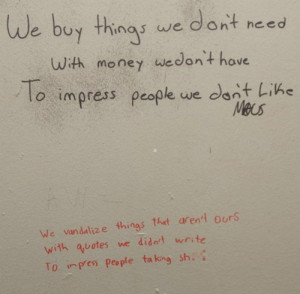 We buy things we don't need
With money we don't have
To impress people we don't Like
We vandalize things that aren't ours
with quotes we didn't write
To impress people taking